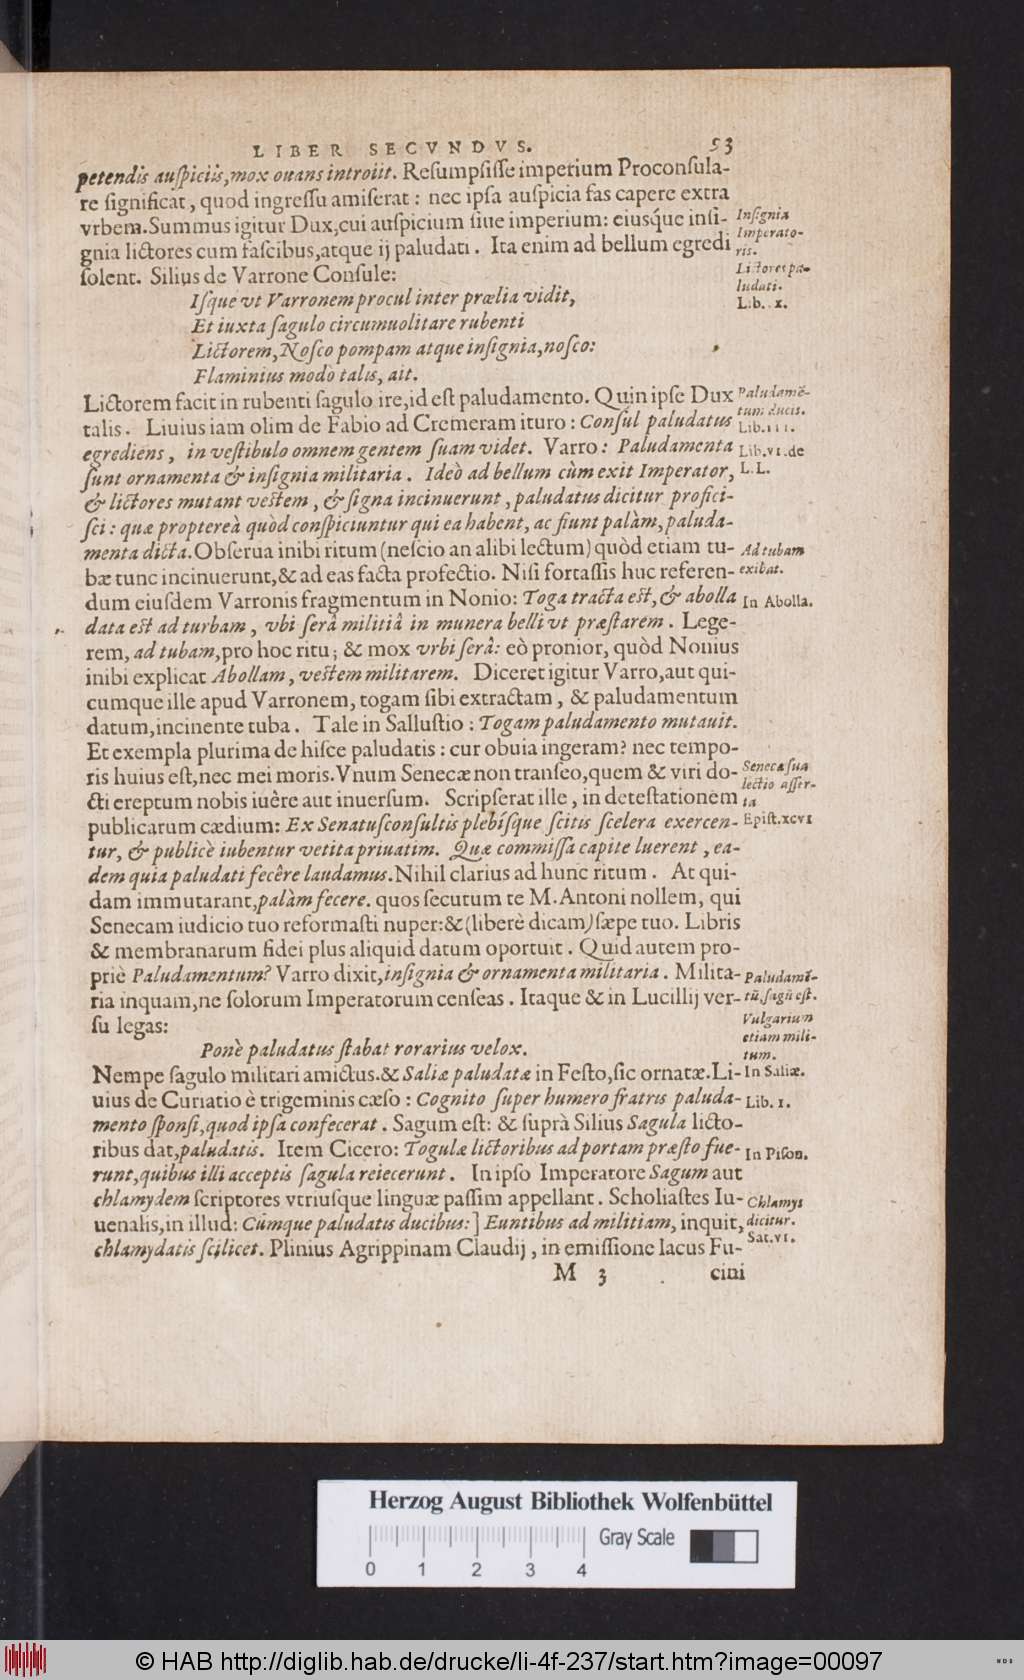 LIBER SECVNDVS. 93
petendis auſpiciis, mox ouans introiit. Reſumpſiſſe imperium Proconſula-
re ſignificat, quod ingreſſu amiſerat: nec ipſa auſpicia fas capere extra
vrbem. Summus igitur Dux, cui auſpicium ſiue imperium: eiusq́ue inſi-
gnia lictores cum faſcibus, atque ij paludati. Ita enim ad bellum egredi
ſolent. Silius de Varrone Conſule:
Inſignia
Imperato-
ris.
Lictores pa-
ludati.
Lib. x.
Iſque vt Varronem procul inter prælia vidit,
Et iuxta ſagulo circumuolitare rubenti
Lictorem, Noſco pompam atque inſignia, noſco:
Flaminius modò talis, ait.
Lictorem facit in rubenti ſagulo ire, id eſt paludamento. Quin ipſe Dux
talis. Liuius iam olim de Fabio ad Cremeram ituro: Conſul paludatus
egrediens, in veſtibulo omnem gentem ſuam videt. Varro: Paludamenta
ſunt ornamenta & inſignia militaria. Ideò ad bellum cùm exit Imperator,
& lictores mutant veſtem, & ſigna incinuerunt, paludatus dicitur profici-
ſci: quæ proptereà quòd conſpiciuntur qui ea habent, ac fiunt palàm, paluda-
menta dicta. Obſerua inibi ritum (neſcio an alibi lectum) quòd etiam tu-
bæ tunc incinuerunt, & ad eas facta profectio. Niſi fortaſſis huc referen-
dum eiuſdem Varronis fragmentum in Nonio: Toga tracta eſt, & abolla
data eſt ad turbam, vbi ferâ militiâ in munera belli vt præſtarem. Lege-
rem, ad tubam, pro hoc ritu; & mox vrbi ferâ: eò pronior, quòd Nonius
inibi explicat Abollam, veſtem militarem. Diceret igitur Varro, aut qui-
cumque ille apud Varronem, togam ſibi extractam, & paludamentum
datum, incinente tuba. Tale in Salluſtio: Togam paludamento mutauit.
Et exempla plurima de hiſce paludatis: cur obuia ingeram? nec tempo-
ris huius eſt, nec mei moris. Vnum Senecæ non tranſeo, quem & viri do-
cti ereptum nobis iuêre aut inuerſum. Scripſerat ille, in deteſtationem
publicarum cædium: Ex Senatuſconſultis plebíſque ſcitis ſcelera exercen-
tur, & publicè iubentur vetita priuatim. Quæ commiſſa capite luerent, ea-
dem quia paludati fecêre laudamus. Nihil clarius ad hunc ritum. At qui-
dam immutarant, palàm fecere. quos ſecutum te M. Antoni nollem, qui
Senecam iudicio tuo reformaſti nuper: & (liberè dicam) ſæpe tuo. Libris
& membranarum fidei plus aliquid datum oportuit. Quid autem pro-
priè Paludamentum? Varro dixit, inſignia & ornamenta militaria. Milita-
ria inquam, ne ſolorum Imperatorum cenſeas. Itaque & in Lucillij ver-
ſu legas:
Paludamẽ-
tum ducis.
Lib. III.
Lib. VI. de
L.L.
Ad tubam
exibat.
In Abolla.
Senecæ ſua
lectio aſſer-
ta
Epiſt. XCVI
Paludamẽ-
tũ, ſagũ eſt.
Vulgarium
etiam mili-
tum.
Ponè paludatus ſtabat rorarius velox.
Nempe ſagulo militari amictus. & Saliæ paludatæ in Feſto, ſic ornatæ. Li-
uius de Curiatio è trigeminis cæſo: Cognito ſuper humero fratris paluda-
mento ſponſi, quod ipſa confecerat. Sagum eſt: & ſuprà Silius Sagula licto-
ribus dat, paludatis. Item Cicero: Togulæ lictoribus ad portam præſto fue-
runt, quibus illi acceptis ſagula reiecerunt. In ipſo Imperatore Sagum aut
chlamydem ſcriptores vtriuſque linguæ paſſim appellant. Scholiaſtes Iu-
uenalis, in illud: Cùmque paludatis ducibus: ] Euntibus ad militiam, inquit,
chlamydatis ſcilicet. Plinius Agrippinam Claudij, in emiſſione lacus Fu-
In Saliæ.
Lib. I.
In Piſon.
Chlamys
dicitur.
Sat. VI.
M 3 cini
Herzog August Bibliothek Wolfenbüttel
Gray Scale
0 1 2 3 4
© HAB http://diglib.hab.de/drucke/li-4f-237/start.htm?image=00097